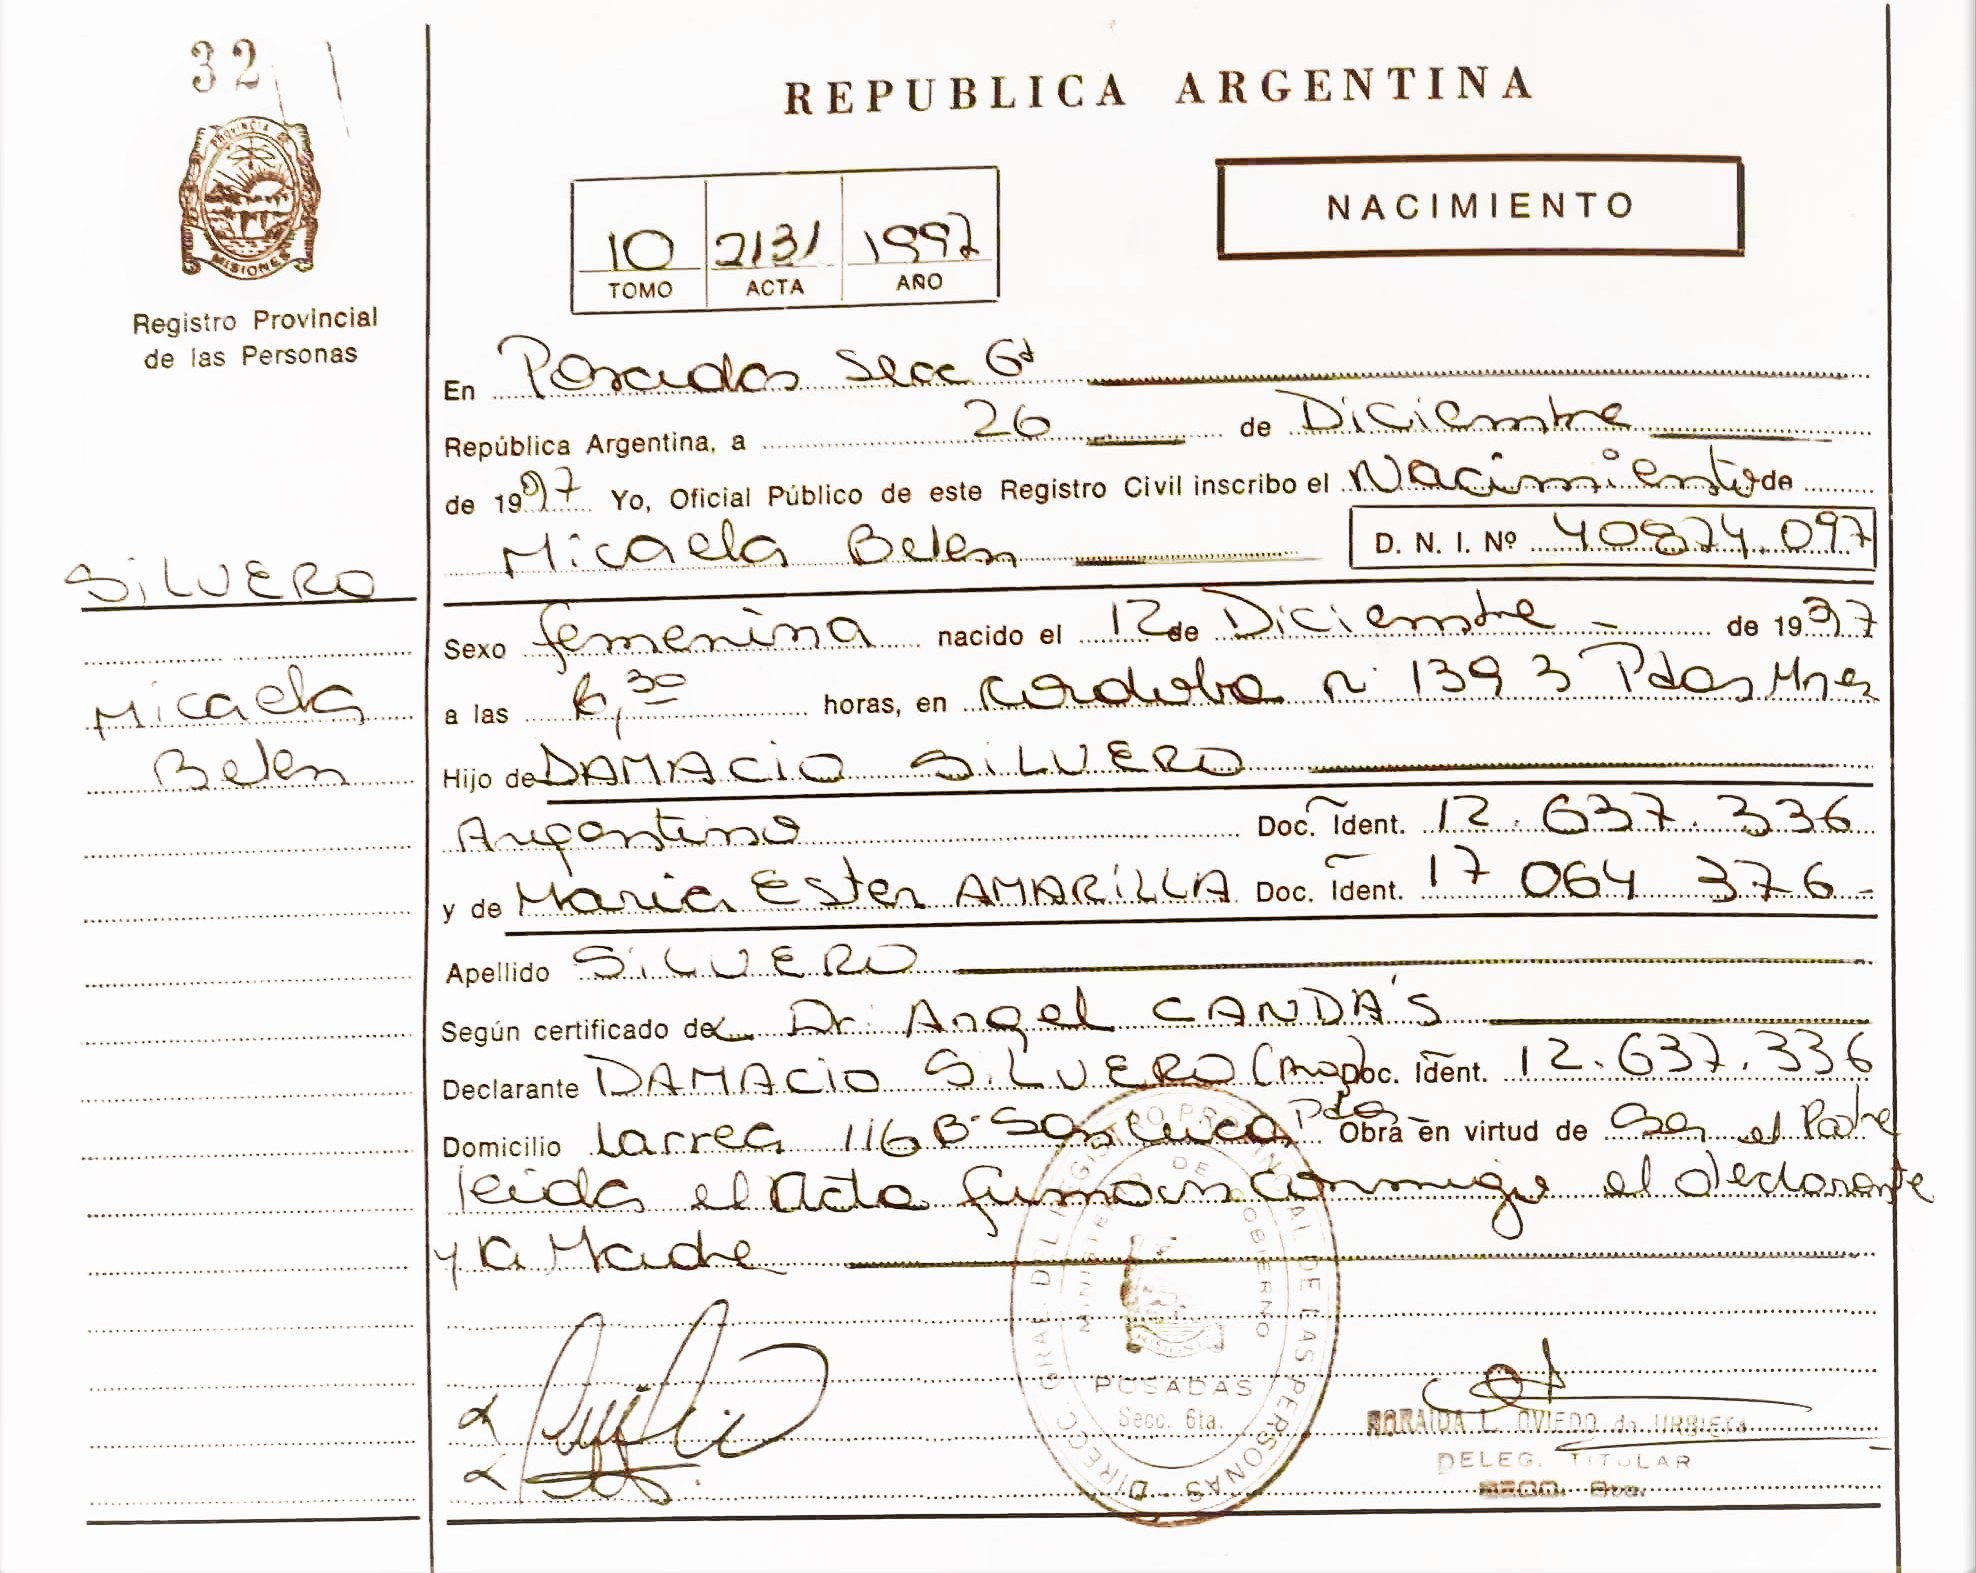 32
REPUBLICA ARGENTINA
PROVINCIA DE
MISIONES
NACIMIENTO
10 2131 1997
TOMO ACTA AÑO
Registro Provincial
de las Personas
En Posadas Secc 6ª
República Argentina, a 26 de Diciembre
de 1997 Yo, Oficial Público de este Registro Civil inscribo el Nacimiento de
Micaela Belen D. N. I. Nº 40874.097
SILVERO
Micaela
Belen
Sexo femenina nacido el 12 de Diciembre - de 1997
a las 6,30 horas, en Cordoba nº 1393 Pdas Mnes
Hijo de DAMACIO SILVERO
Argentino Doc. Ident. 12.637.336
y de Maria Ester AMARILLA Doc. Ident. 17 064 376-
Apellido SILVERO
Según certificado del Dr. Angel CANDA'S
Declarante DAMACIO SILVERO Doc. Ident. 12.637.336
Domicilio Larrea 116 Bº Pdas Obra en virtud de Ser el Padre
leida el Acta firman conmigo el declarante
y la Madre
DIRECC. GRAL. DEL REGISTRO PROVINCIAL DE LAS PERSONAS
MINISTERIO DE GOBIERNO
MISIONES
POSADAS
Secc. 6ta.
L. OVIEDO de URBIETA
DELEG. TITULAR
SECC. 6ta.